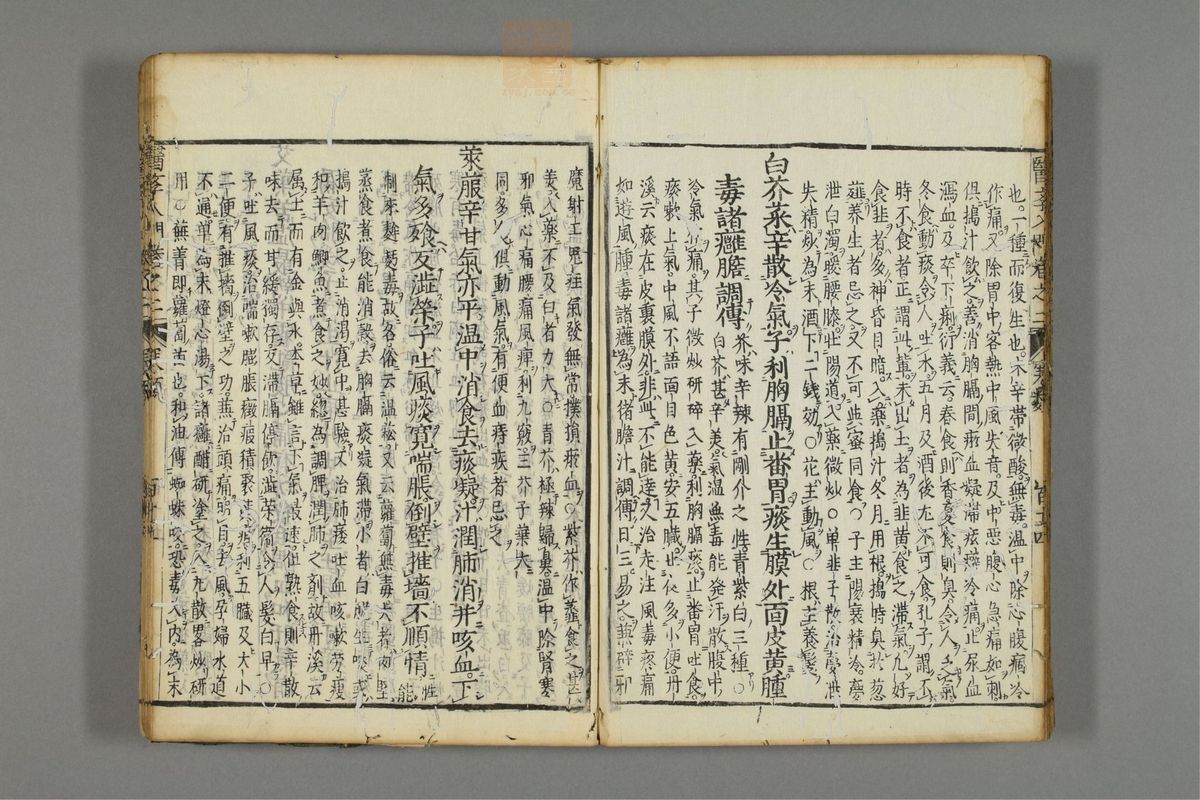 也一種而復生也味辛帶微酸無毒溫中除心腹痼冷
作痛又除胃中客熱中風失音及中惡腹心急痛如刺
俱搗汁飲之善消胸膈間瘀血凝滯痃癖冷痛止尿血
瀉血及卒下痢衍義云春食則香夏食則臭令人乏氣
冬食動痰令人吐水五月及酒後尤不可食孔子謂不
時不食者正謂此輩未出土者為韭黃食之滯氣凡好
食韭者多神昏目暗入藥搗汁冬月用根搗時臭於葱
薤養生者忌之又不可與蜜同食○子主陽衰精冷夢
泄白濁暖腰膝壯陽道入藥微炒○單韭子散治夢泄
失精炒為末酒下二錢効○花主動風○根主養髮
白芥菜辛散冷氣子利胸膈止番胃痰生膜外面皮黃腫
毒諸癰膽調傅
芥味辛辣有剛介之性青紫白三種○
白芥甚辛美氣溫無毒能發汗散腹中
冷氣作痛其子微炒研碎入藥利胸膈痰止番胃吐食
痰嗽上氣中風不語面目色黃安五臟止夜多小便丹
溪云痰在皮裏膜外非此不能達又治走注風毒疼痛
如遊風腫毒諸癰為末猪膽汁調傅日三易之兼辟邪
魔射工鬼疰氣發無常撲損瘀血○紫芥作虀食之甚
美入藥不及白者力大○青芥極辣歸鼻溫中除腎寒
邪氣心痛腰痛風痺利九竅三芥子葉大
同多食俱動風氣有便血痔疾者忌之
萊菔辛甘氣亦平溫中消食去痰凝汁潤肺消并咳血下
氣多飡反澁榮子吐風痰寬喘脹倒壁推墻不順情
性能
制來麰麪毒故名俗云溫菘又云蘿蔔無毒大者肉堅
蒸食煮食能消穀去胸膈痰凝氣滯小者白脆生啖或
搗汁飲之止消渴寬中甚驗又治肺痿吐血咳嗽勞瘦
和羊肉鯽魚煮食之妙總為調脾潤肺之劑故丹溪云
屬土而有金與水本草雖言下氣最速但熟食則辛散
味去而甘緩獨存反滯膈停飲澁榮衛令人髮白早○
子吐風痰治喘嗽膨脹癥瘕積聚黃疸利五臟及大小
二便有推墻倒壁之功兼治頭痛明目去風孕婦水道
不通單為末燈心湯下諸癰醋研塗之入丸散畧炒研
用○蕪菁即蘿蔔苗也和油傅蜘蛛咬恐毒入內為末